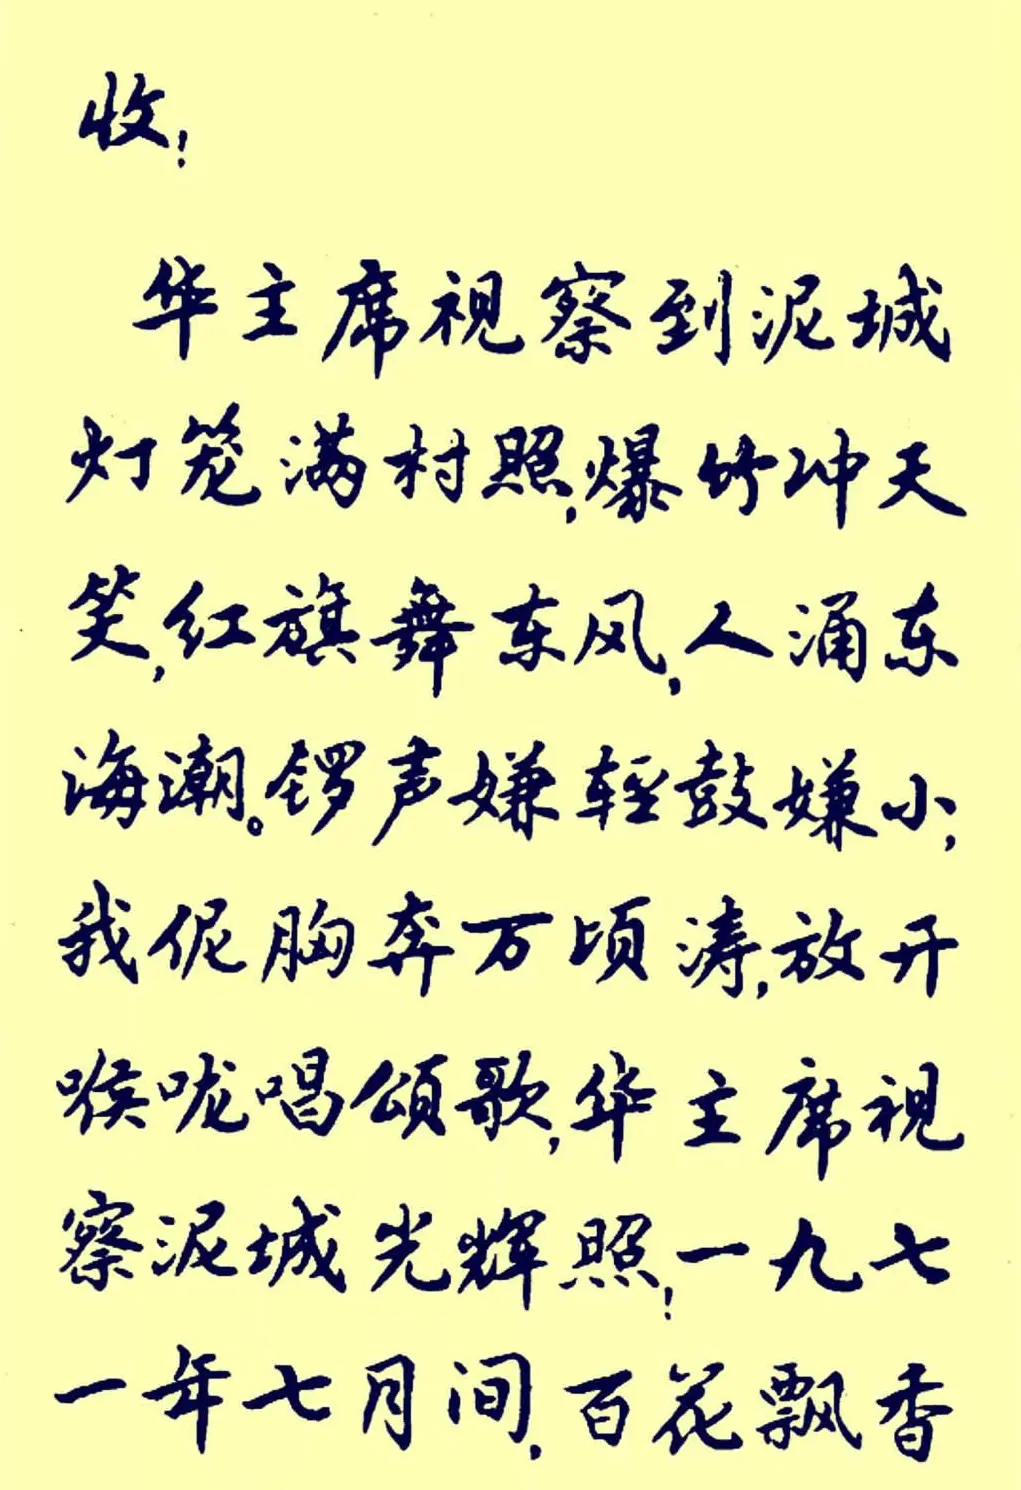 收！
华主席视察到泥城
灯笼满村照，爆竹冲天
笑，红旗舞东风，人涌东
海潮。锣声嫌轻鼓嫌小，
我伲胸奔万顷涛，放开
喉咙唱颂歌，华主席视
察泥城光辉照！一九七
一年七月间，百花飘香